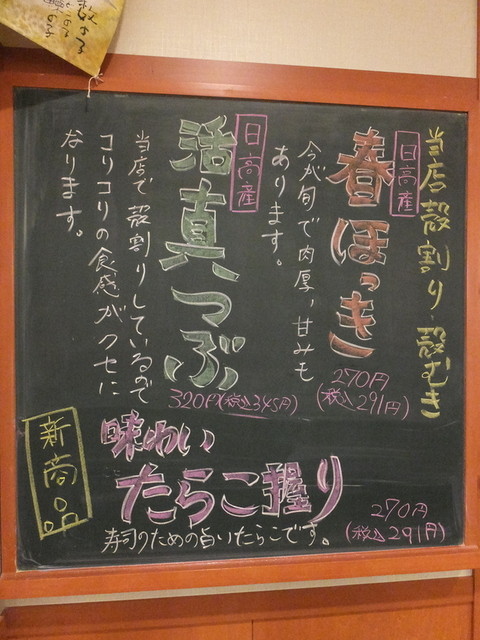 当店殻割り・殻むき
日高産
春ほっき
270円
(税込291円)
今が旬で肉厚、甘みも
あります。
日高産
活真つぶ
320円(税込345円)
当店で殻割りしているので
コリコリの食感がクセに
なります。
新商品
味わい
たらこ握り
270円
(税込291円)
寿司のための旨いたらこです。